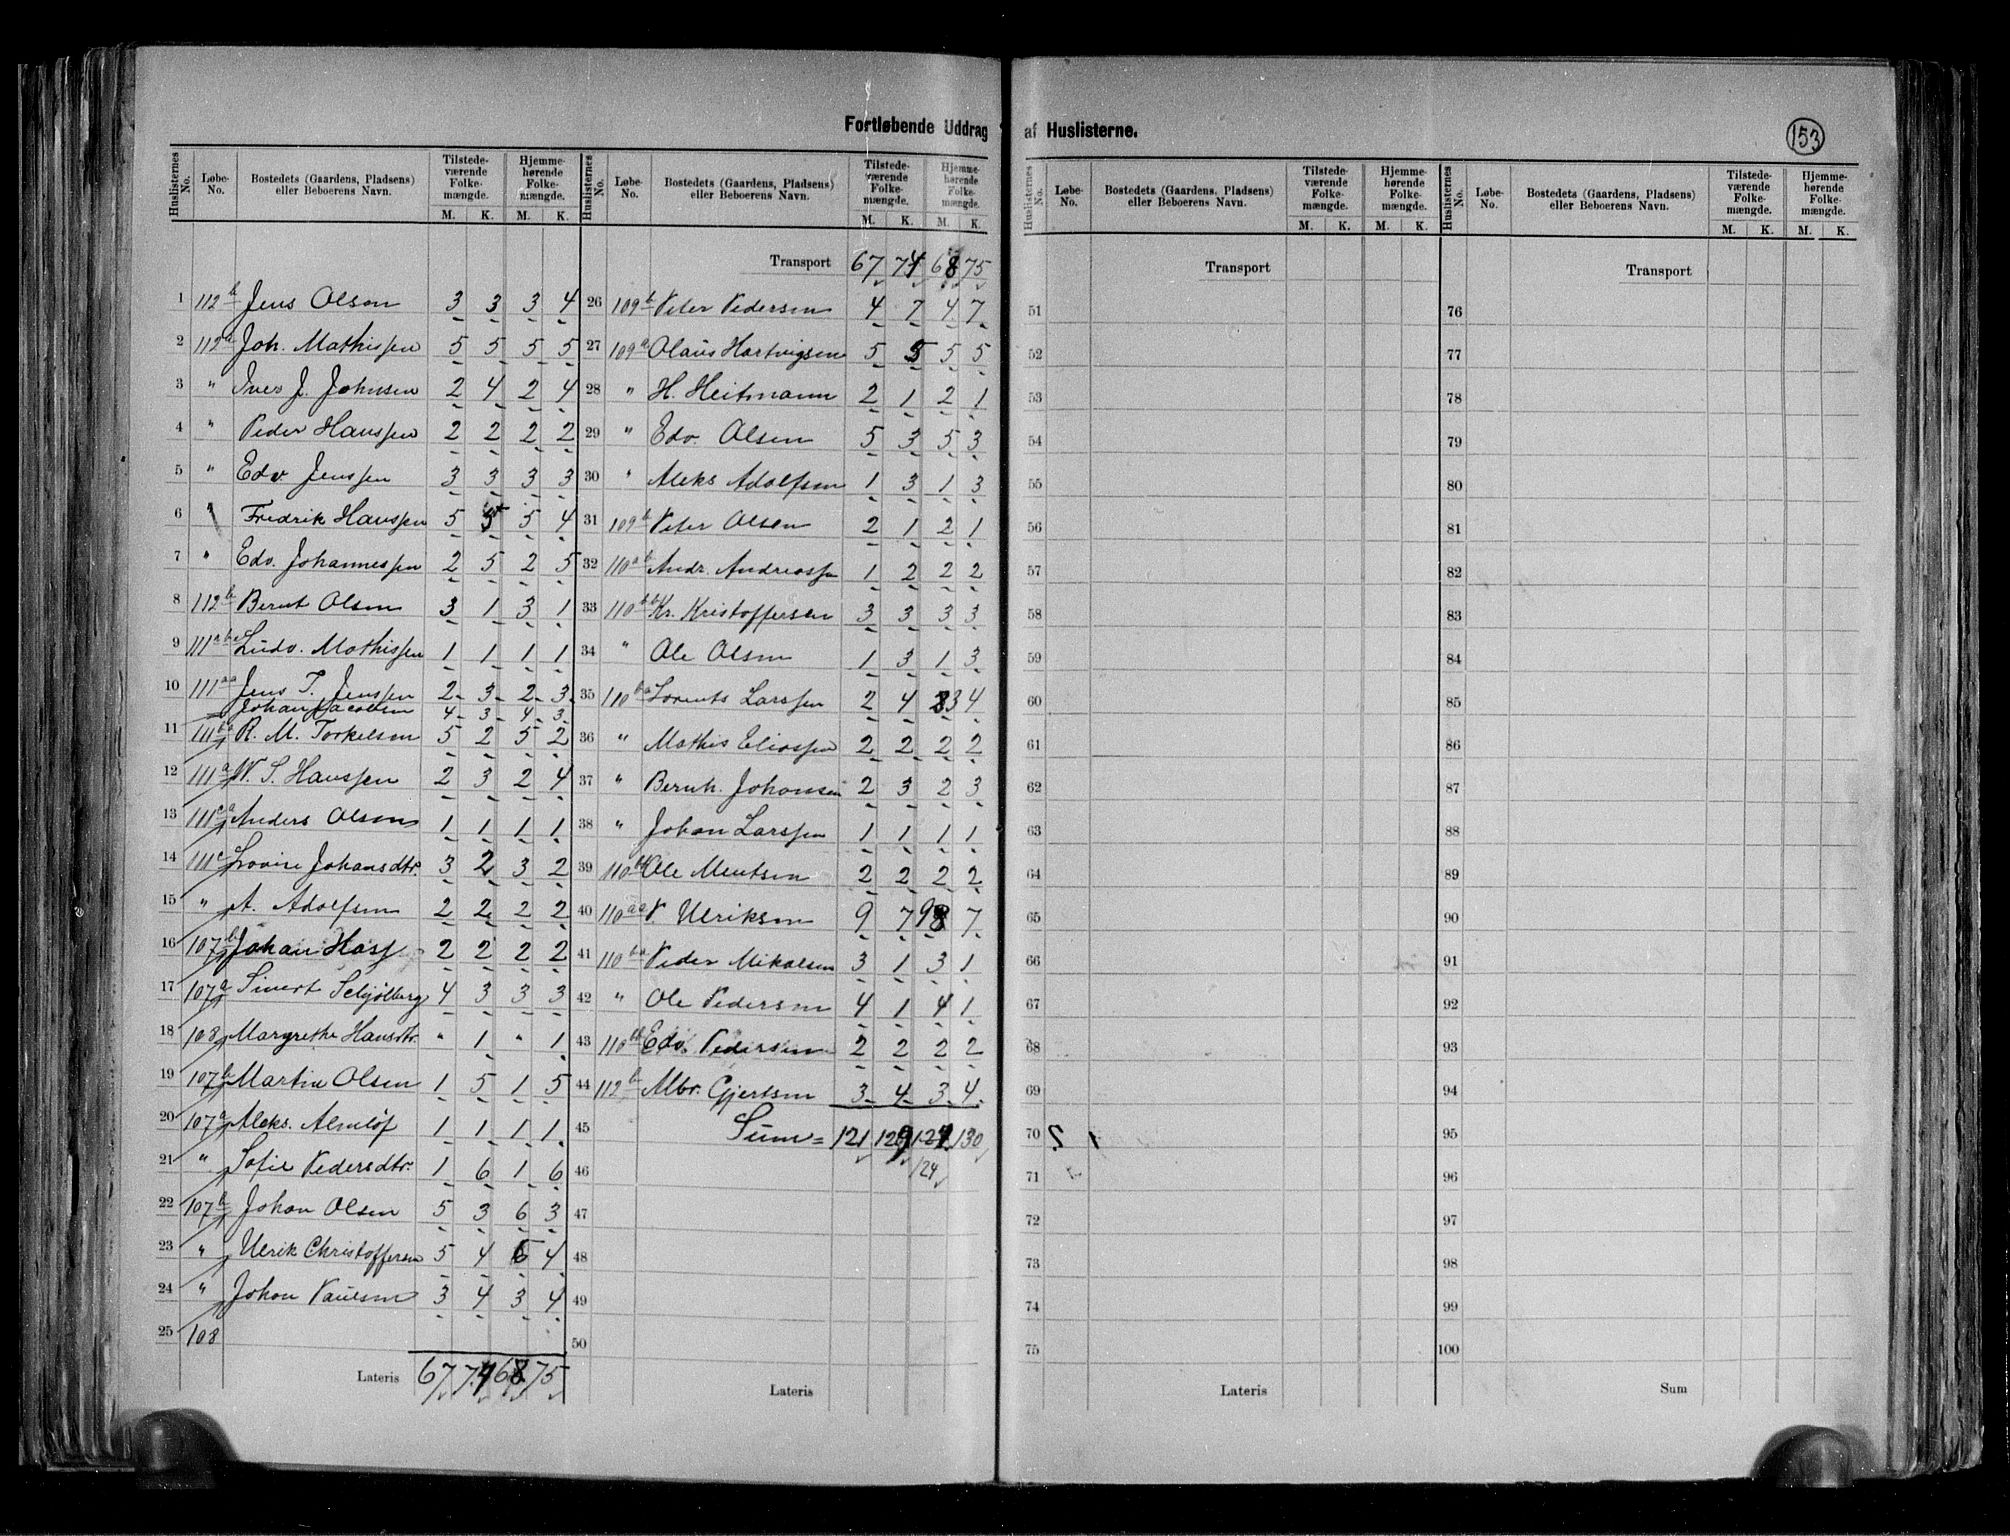 Fortløbende Uddrag af Huslisterne.
153
Huslisternes No. | Løbe-No. | Bostedets (Gaardens, Pladsens) eller Beboerens Navn. | Tilstedeværende Folkemængde. M. K. | Hjemmehørende Folkemængde. M. K.
1 112 b Jens Olsen 3 3 3 4
2 112 a Joh. Mathissen 5 5 5 5
3 " Iver J. Johnsen 2 4 2 4
4 " Peder Hanssen 2 2 2 2
5 " Edv. Jenssen 3 3 3 3
6 " Fredrik Hanssen 5 5 4
7 " Edv. Johannessen 2 5 2 5
8 112 b Bernt Olsen 3 1 3 1
9 111 Ludv. Mathissen 1 1 1 1
10 111 aa Jens T. Jenssen 2 3 2 3
Johan Jacobsen 4 3 4 3
11 111 ba R. M. Torkelsen 5 2 5 2
12 111 a W. S. Hanssen 2 3 2 4
13 111 Anders Olsen 1 1 1 1
14 111 c Lovise Johansdtr. 3 2 3 2
15 " A. Adolfsen 2 2 2 2
16 107 b Johan Hass 2 2 2 2
17 107 a Sivert Schjølberg 4 3 3 3
18 108 Margrethe Hansdtr. " 1 " 1
19 107 b Martin Olsen 1 5 1 5
20 107 a Aleks. Almløf 1 1 1 1
21 " Sofie Pedersdtr. 1 6 1 6
22 107 b Johan Olsen 5 3 6 3
23 " Ulrik Christoffersen 5 4 4
24 " Johan Paulsen 3 4 3 4
25 108
Lateris 67 74 68 75
Huslisternes No. | Løbe-No. | Bostedets (Gaardens, Pladsens) eller Beboerens Navn. | Tilstedeværende Folkemængde. M. K. | Hjemmehørende Folkemængde. M. K.
Transport 67 74 68 75
26 109 b Peter Pedersen 4 7 4 7
27 109 a Olaus Hartvigsen 5 5 5 5
28 " H. Heitmann 2 1 2 1
29 " Edv. Olsen 5 3 5 3
30 " Aleks Adolfsen 1 3 1 3
31 109 b Peter Olsen 2 1 2 1
32 110 ab Andr. Andreassen 1 2 2 2
33 110 bb Kr. Kristoffersen 3 3 3 3
34 " Ole Olsen 1 3 1 3
35 110 ba Lorents Larssen 2 4 3 4
36 " Mathis Eliassen 2 2 2 2
37 " Bernh. Johansen 2 3 2 3
38 " Johan Larssen 1 1 1 1
39 110 bb Ole Mentsen 2 2 2 2
40 110 aa P. Ulriksen 9 7 9 7
41 110 ba Peder Mikalsen 3 1 3 1
42 " Ole Pedersen 4 1 4 1
43 110 bb Edv. Pedersen 2 2 2 2
44 112 b Mbr. Gjertsen 3 4 3 4
45 Sum = 121 129 124 130
46 124
47
48
49
50
Lateris
Huslisternes No. | Løbe-No. | Bostedets (Gaardens, Pladsens) eller Beboerens Navn. | Tilstedeværende Folkemængde. M. K. | Hjemmehørende Folkemængde. M. K.
Transport
51
52
53
54
55
56
57
58
59
60
61
62
63
64
65
66
67
68
69
70
71
72
73
74
75
Lateris
Huslisternes No. | Løbe-No. | Bostedets (Gaardens, Pladsens) eller Beboerens Navn. | Tilstedeværende Folkemængde. M. K. | Hjemmehørende Folkemængde. M. K.
Transport
76
77
78
79
80
81
82
83
84
85
86
87
88
89
90
91
92
93
94
95
96
97
98
99
100
Sum